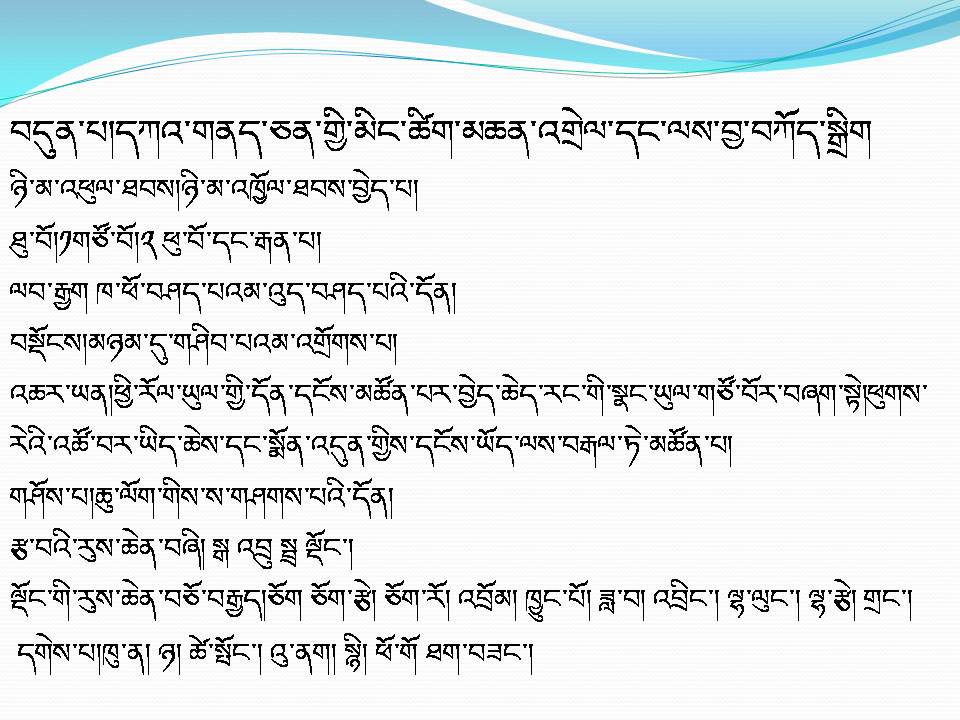 བདུན་པ།དཀའ་གནད་ཅན་གྱི་མིང་ཚིག་མཆན་འགྲེལ་དང་ལས་བྱ་བཀོད་སྒྲིག
ཉི་མ་འཕུལ་ཐབས།ཉི་མ་འཁྱོལ་ཐབས་བྱེད་པ།
ཐུ་བོ།༡གཙོ་བོ།༢ ཕུ་བོ་དང་རྒན་པ།
ལབ་རྒྱག ཁ་ཕོ་བཤད་པའམ་འུད་བཤད་པའི་དོན།
བསྡོངས།མཉམ་དུ་གཤིབ་པའམ་འགྲོགས་པ།
འཆར་ཡན།ཕྱི་རོལ་ཡུལ་གྱི་དོན་དངོས་མཚོན་པར་བྱེད་ཆེད་རང་གི་སྣང་ཡུལ་གཙོ་བོར་བཞག་སྟེ།ཕུགས་
རེའི་འཚོ་བར་ཡིད་ཆེས་དང་སྨོན་འདུན་གྱིས་དངོས་ཡོད་ལས་བརྒལ་ཏེ་མཚོན་པ།
གཤོས་པ།ཆུ་ལོག་གིས་ས་གཤགས་པའི་དོན།
རྩ་བའི་རུས་ཆེན་བཞི། སྒ འབྲུ སྦྲ ལྡོང་།
ལྡོང་གི་རུས་ཆེན་བཅོ་བརྒྱད།ཅོག ཅོག་རྩེ། ཅོག་རོ། འབྲོམ། ཁྱུང་པོ། ཟླ་བ། འབྲིང་། ལྷ་ལུང་། ལྷ་རྩེ། གྲང་།
དགེས་པ།ཁུ་ན། ཉ། ཚེ་སྤོང་། འུ་ནག། སྙི། ཕོ་གོ ཐག་བཟང་།